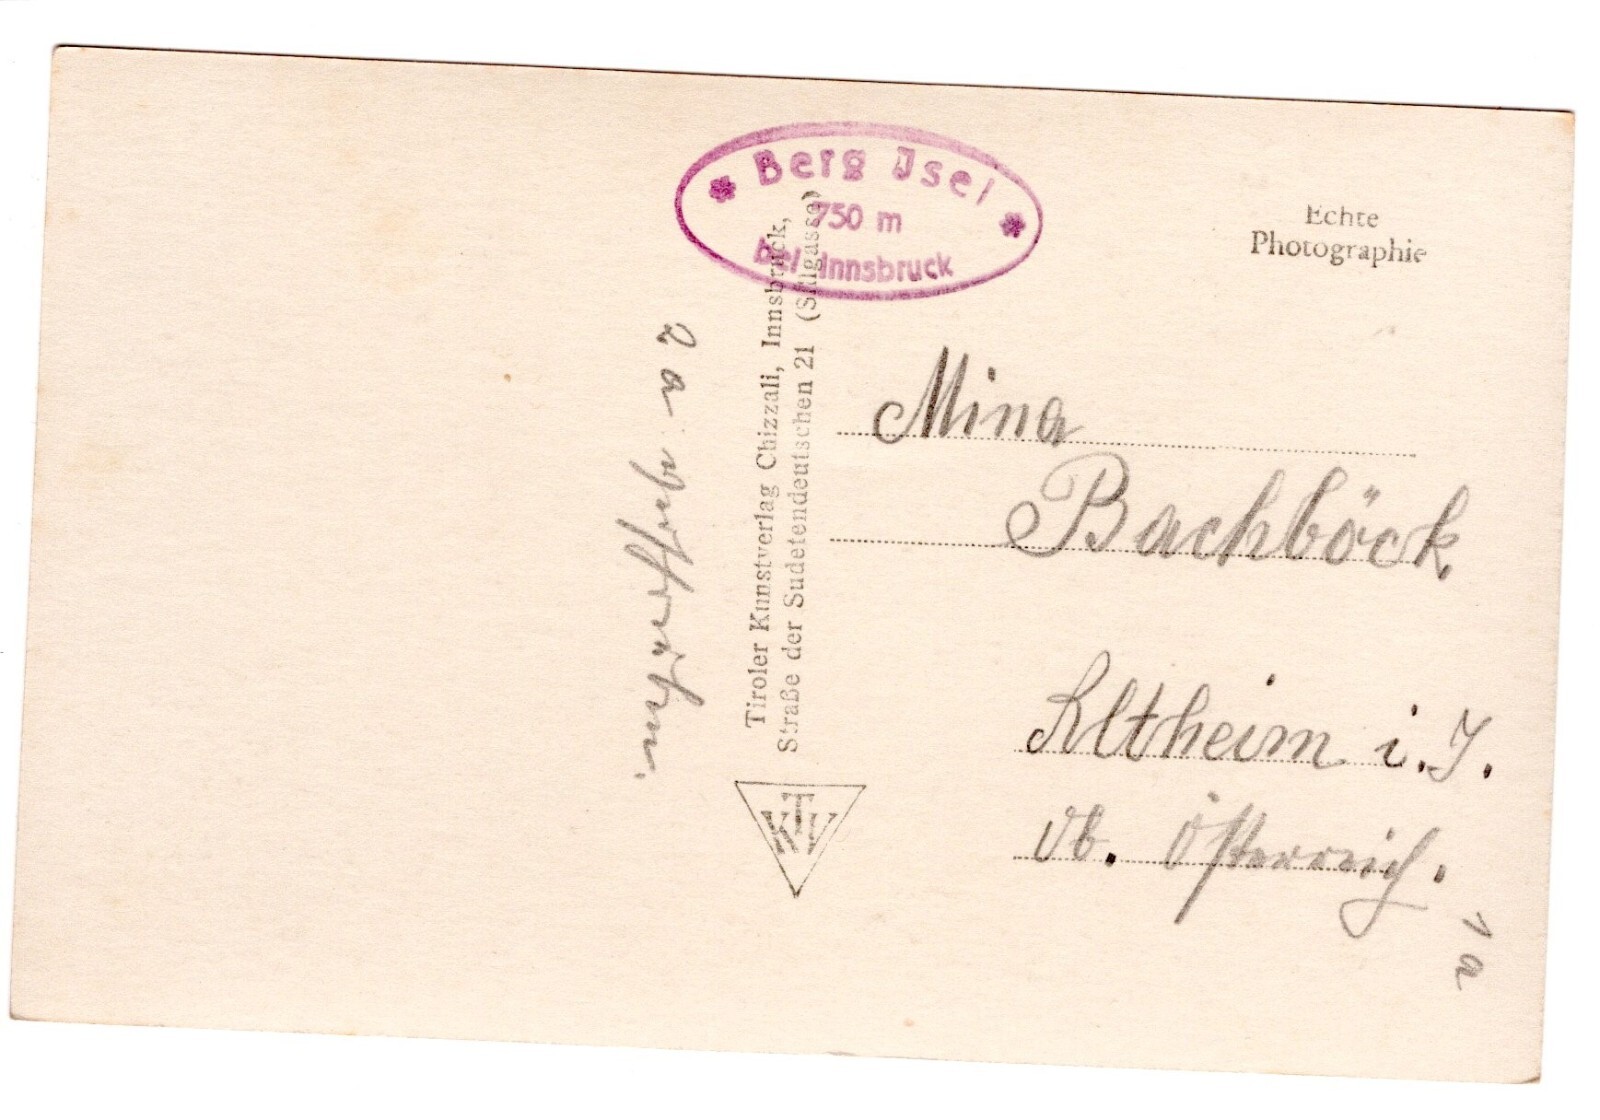 * Berg Isel *
750 m
bei Innsbruck
Echte
Photographie
Tiroler Kunstverlag Chizzali, Innsbruck,
Straße der Sudetendeutschen 21 (Sillgasse)
KTV
2 a
Mina
Bachböck
Altheim i. J.
Ob. Österreich.
1 a